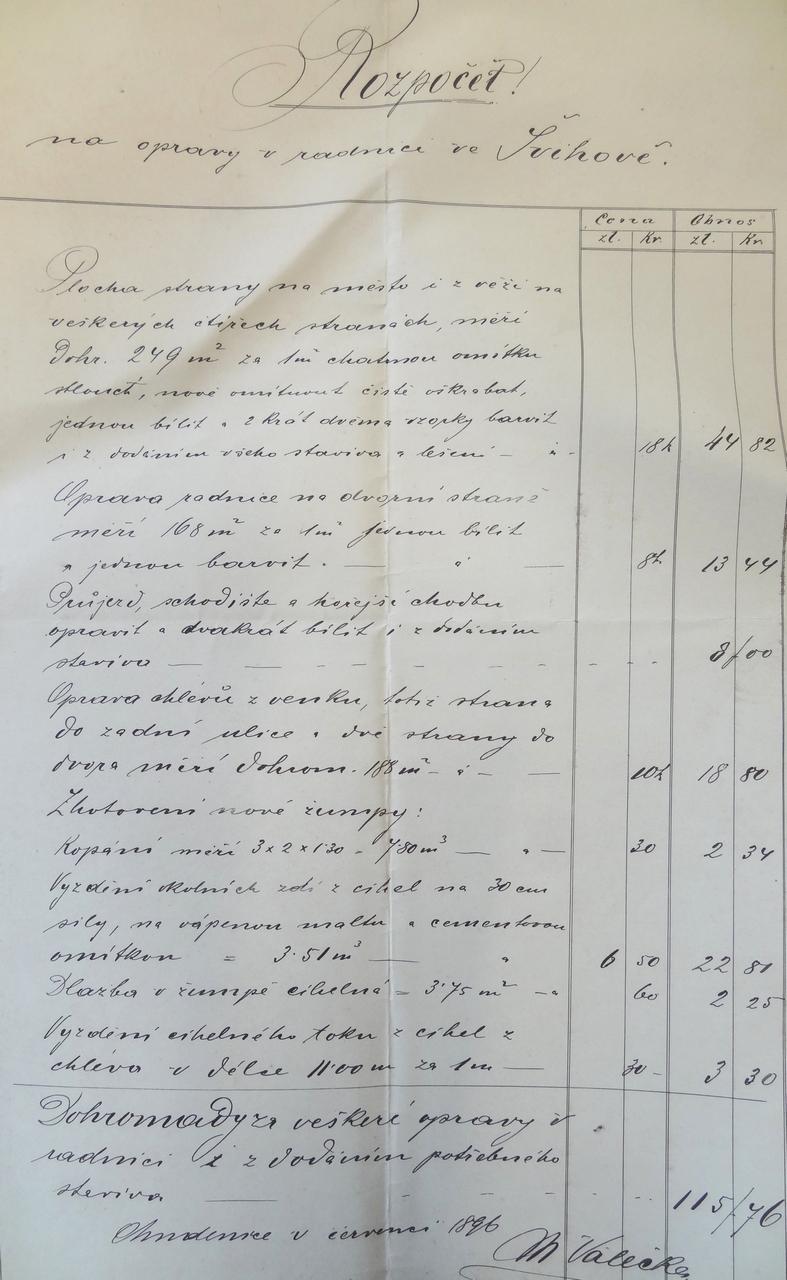 Rozpočet!
na opravy v radnici ve Švihově.
Cena Obnos
zl. Kr. zl. Kr.
Plocha strany na město i z věží na
veškerých čtířech stranách, měří
dohr. 249 m² za 1m² chatrnou omítku
stlouct, nově omítnout čistě oškrabat,
jednou bílit a 2 krát dvěma vzorky barvit
i z dodáním všeho staviva a lešení — à - 18k 44 82
Oprava radnice na dvorní straně
měří 168 m² za 1m² jednou bílit
a jednou barvit. — à — 8k 13 44
Průjezd, schodiště a hořejší chodbu
opravit a dvakrát bílit i z dodáním
staviva — — - - - - - - - - 8/00
Oprava chlévů z venku, totiž strana
do zadní ulice a dvě strany do
dvora měří dohrom. 188 m² - à - — 10k 18 80
Zhotovení nové žumpy:
Kopání měří 3 x 2 x 1·30 = 7·80 m³ — " — 30 2 34
Vyzdění okolních zdí z cihel na 30 cm
síly, na vápenou maltu a cementovou
omítkou = 3·51 m³ — " 6 50 22 81
Dlazba v žumpě cihelná = 3·75 m² — " 60 2 25
Vyzdění cihelného toku z cihel z
chléva v délce 11·00 m za 1m — 30 - 3 30
Dohromady za veškeré opravy v
radnici i z dodáním potřebného
staviva — - - - - - 115/76
Chudenice v červenci 1896
M Valečka